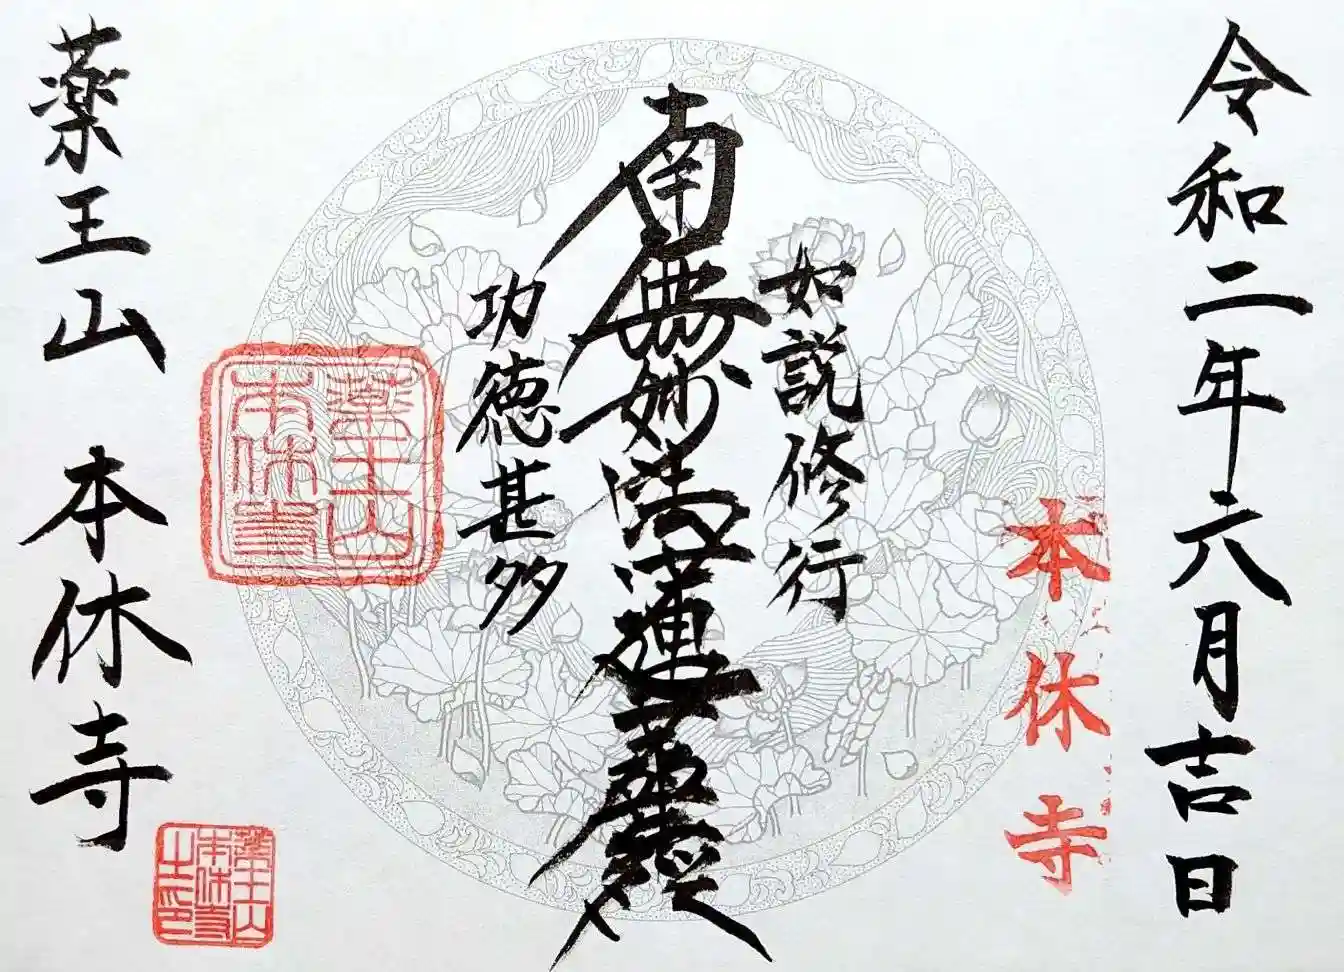 令和二年六月吉日
本休寺
如説修行
南無妙法蓮華経
功徳甚多
薬王山
本休寺
薬王山 本休寺
薬王山
本休寺
之印